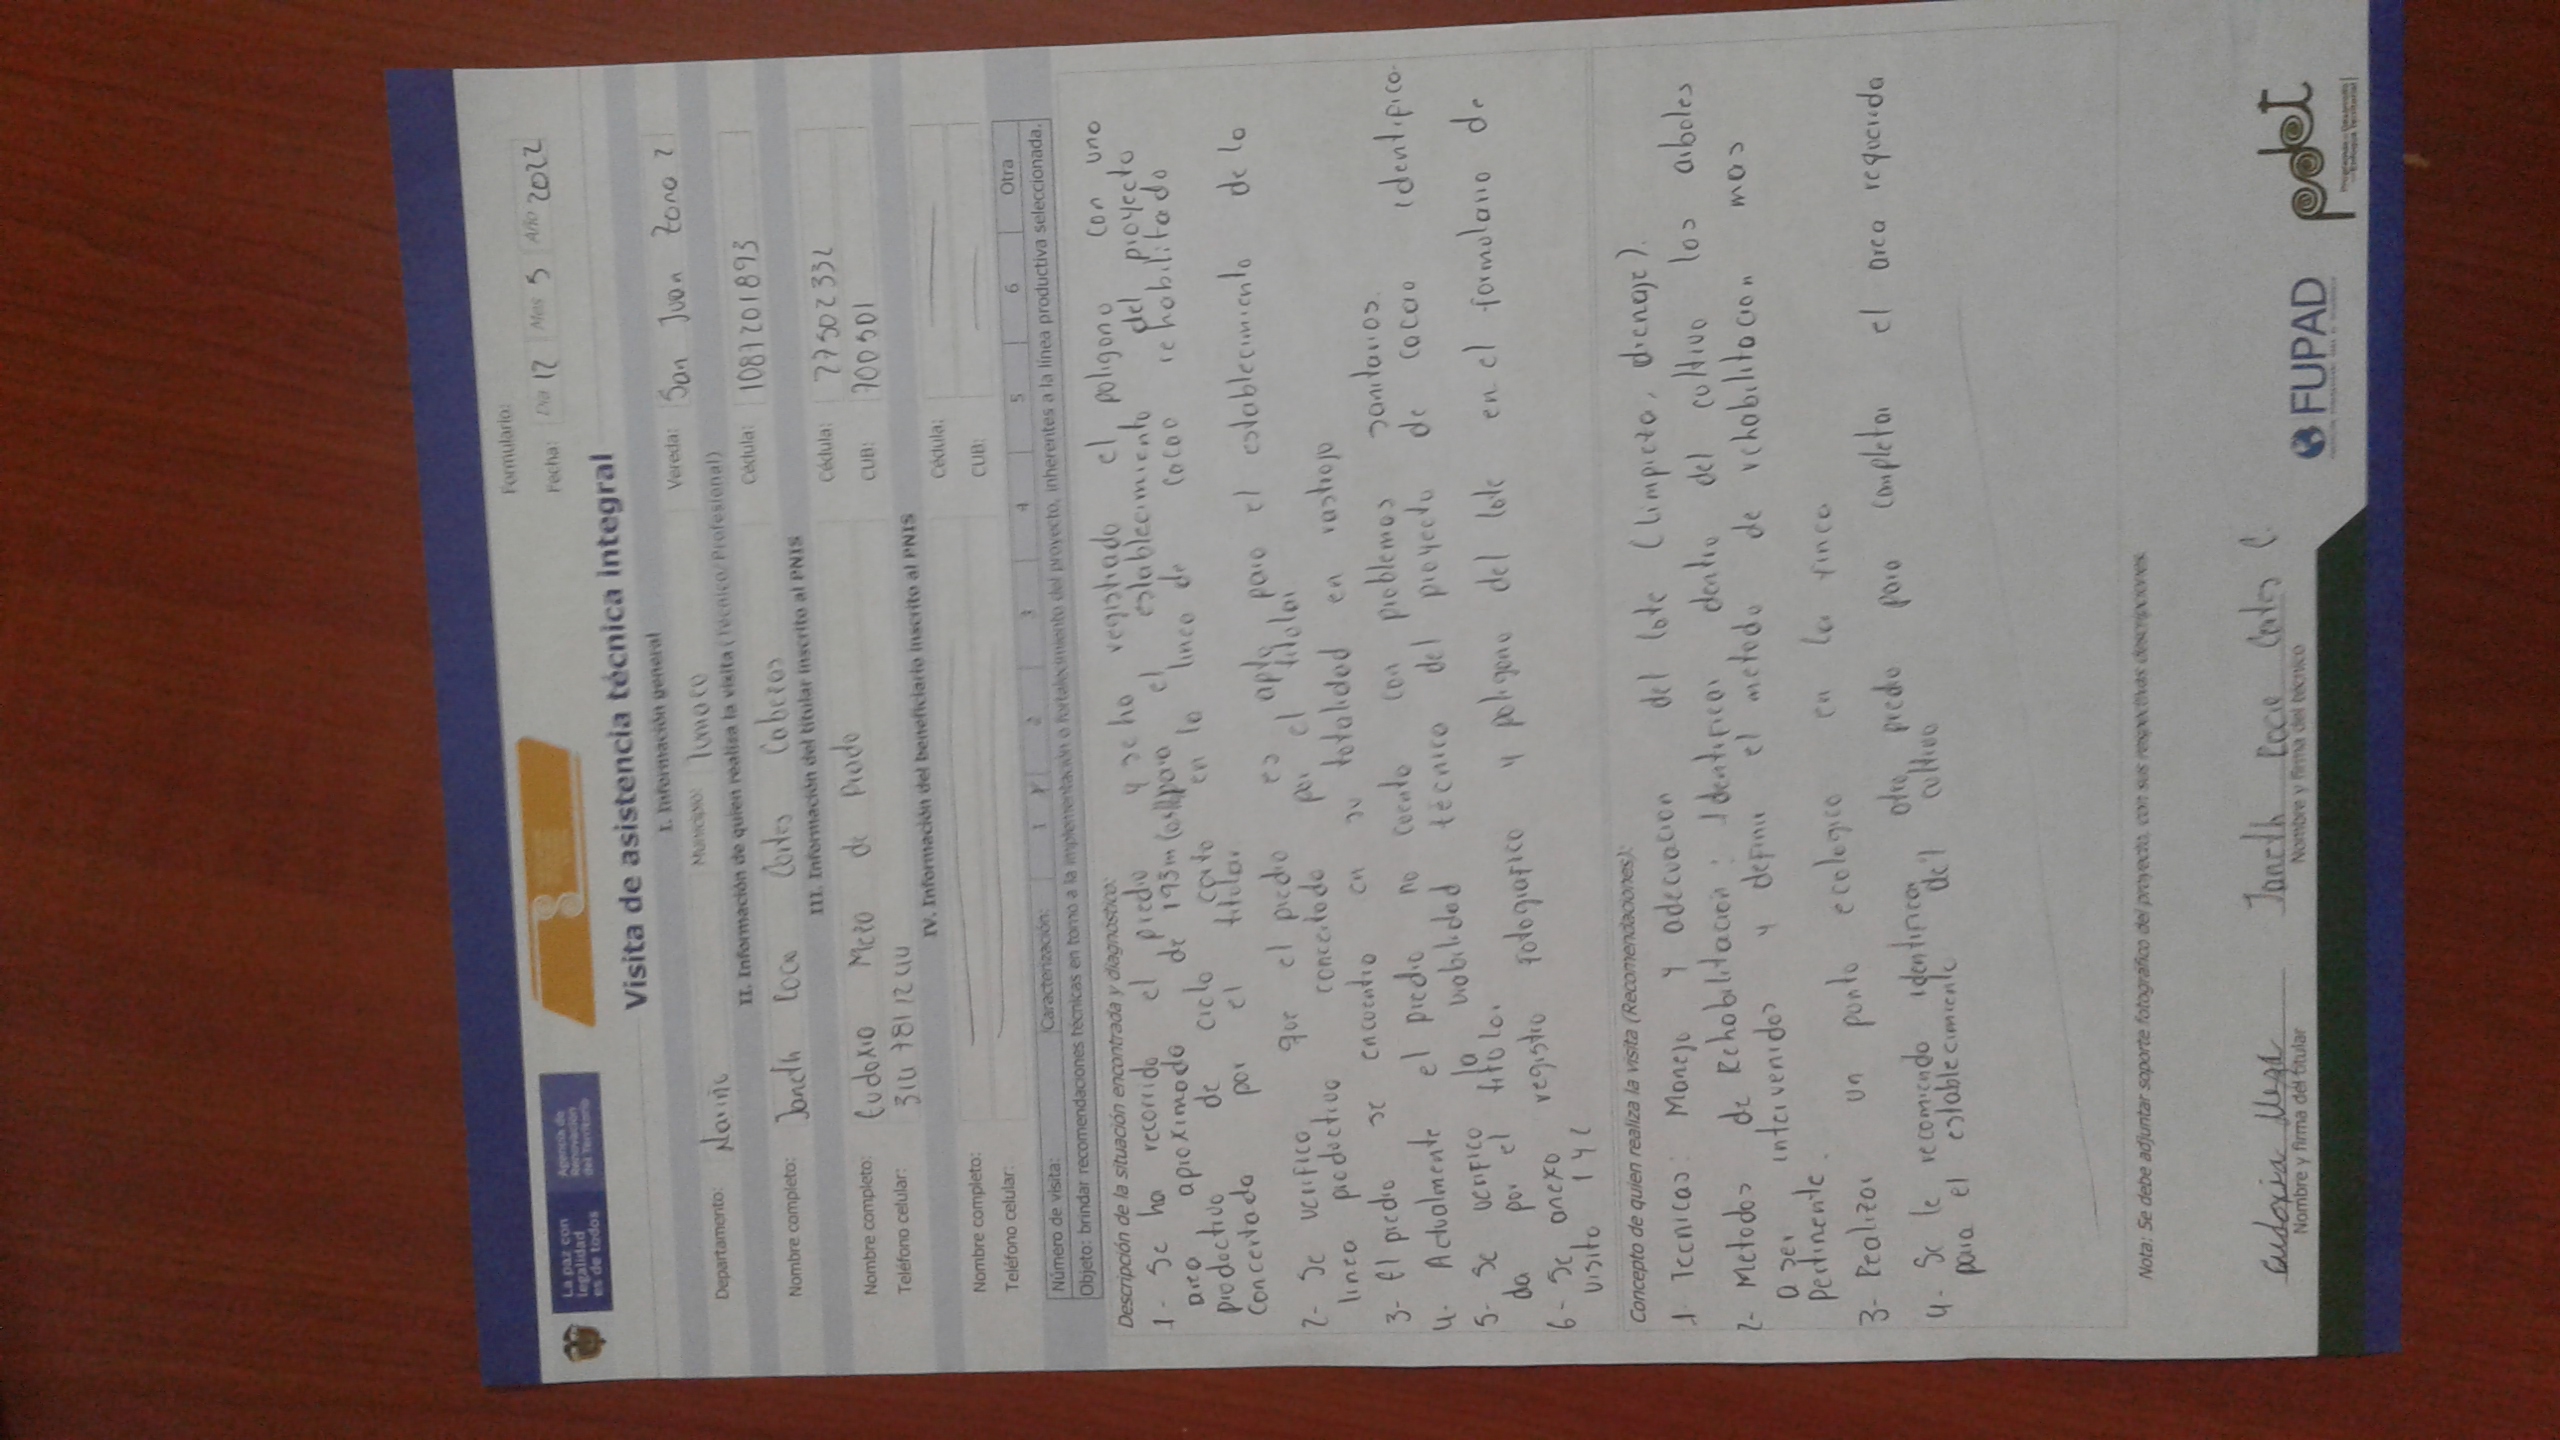 La paz con
legalidad
es de todos
Agencia de
Renovación
del Territorio
Formulario:
Fecha: Día 12 Mes 5 Año 2022
Visita de asistencia técnica integral
I. Información general
Departamento: Nariño Municipio: Tumaco Vereda: San Juan Zona 2
II. Información de quien realiza la visita (Técnico/Profesional)
Nombre completo: Janeth Roce Cortes Cabezas Cédula: 1087201893
III. Información del titular inscrito al PNIS
Nombre completo: Eudoxio Meza de Prado Cédula: 27502332
Teléfono celular: 314 781 1240 CUB: 700501
IV. Información del beneficiario inscrito al PNIS
Nombre completo: Cédula:
Teléfono celular: CUB:
Número de visita: Caracterización: 1 2 3 4 5 6 Otra
Objeto: brindar recomendaciones técnicas en torno a la implementación o fortalecimiento del proyecto, inherentes a la línea productiva seleccionada.
Descripción de la situación encontrada y diagnóstico:
1- Se ha recorrido el predio y se ha registrado el poligono con una
area aproximada de 193m para el establecimiento del proyecto
productivo de ciclo corto en la linea de cacao rehabilitado
concertada por el titular
2- Se verifico que el predio es apto para el establecimiento de la
linea productiva concertada por el titular
3- El predio se encuentra en su totalidad en rastrojo
4- Actualmente el predio no cuenta con problemas sanitarios.
5- Se verifico la viabilidad técnica del proyecto de cacao identifica-
da por el titular
6- Se anexo registro fotografico y poligono del lote en el formulario de
visita 1 y 2
Concepto de quien realiza la visita (Recomendaciones):
1- Tecnicas: Manejo y adecuacion del lote (limpieza, drenaje).
2- Metodos de Rehabilitación: Identificar dentro del cultivo los arboles
a ser intervenidos y definir el metodo de rehabilitacion mas
pertinente.
3- Realizar un punto ecologico en la finca
4- Se le recomienda identificar otro predio para completar el area requerida
para el establecimiento del cultivo
Nota: Se debe adjuntar soporte fotográfico del proyecto, con sus respectivas descripciones.
Eudoxia Meza
Nombre y firma del titular
Janeth Roce Cortes C.
Nombre y firma del técnico
FUPAD
pdet